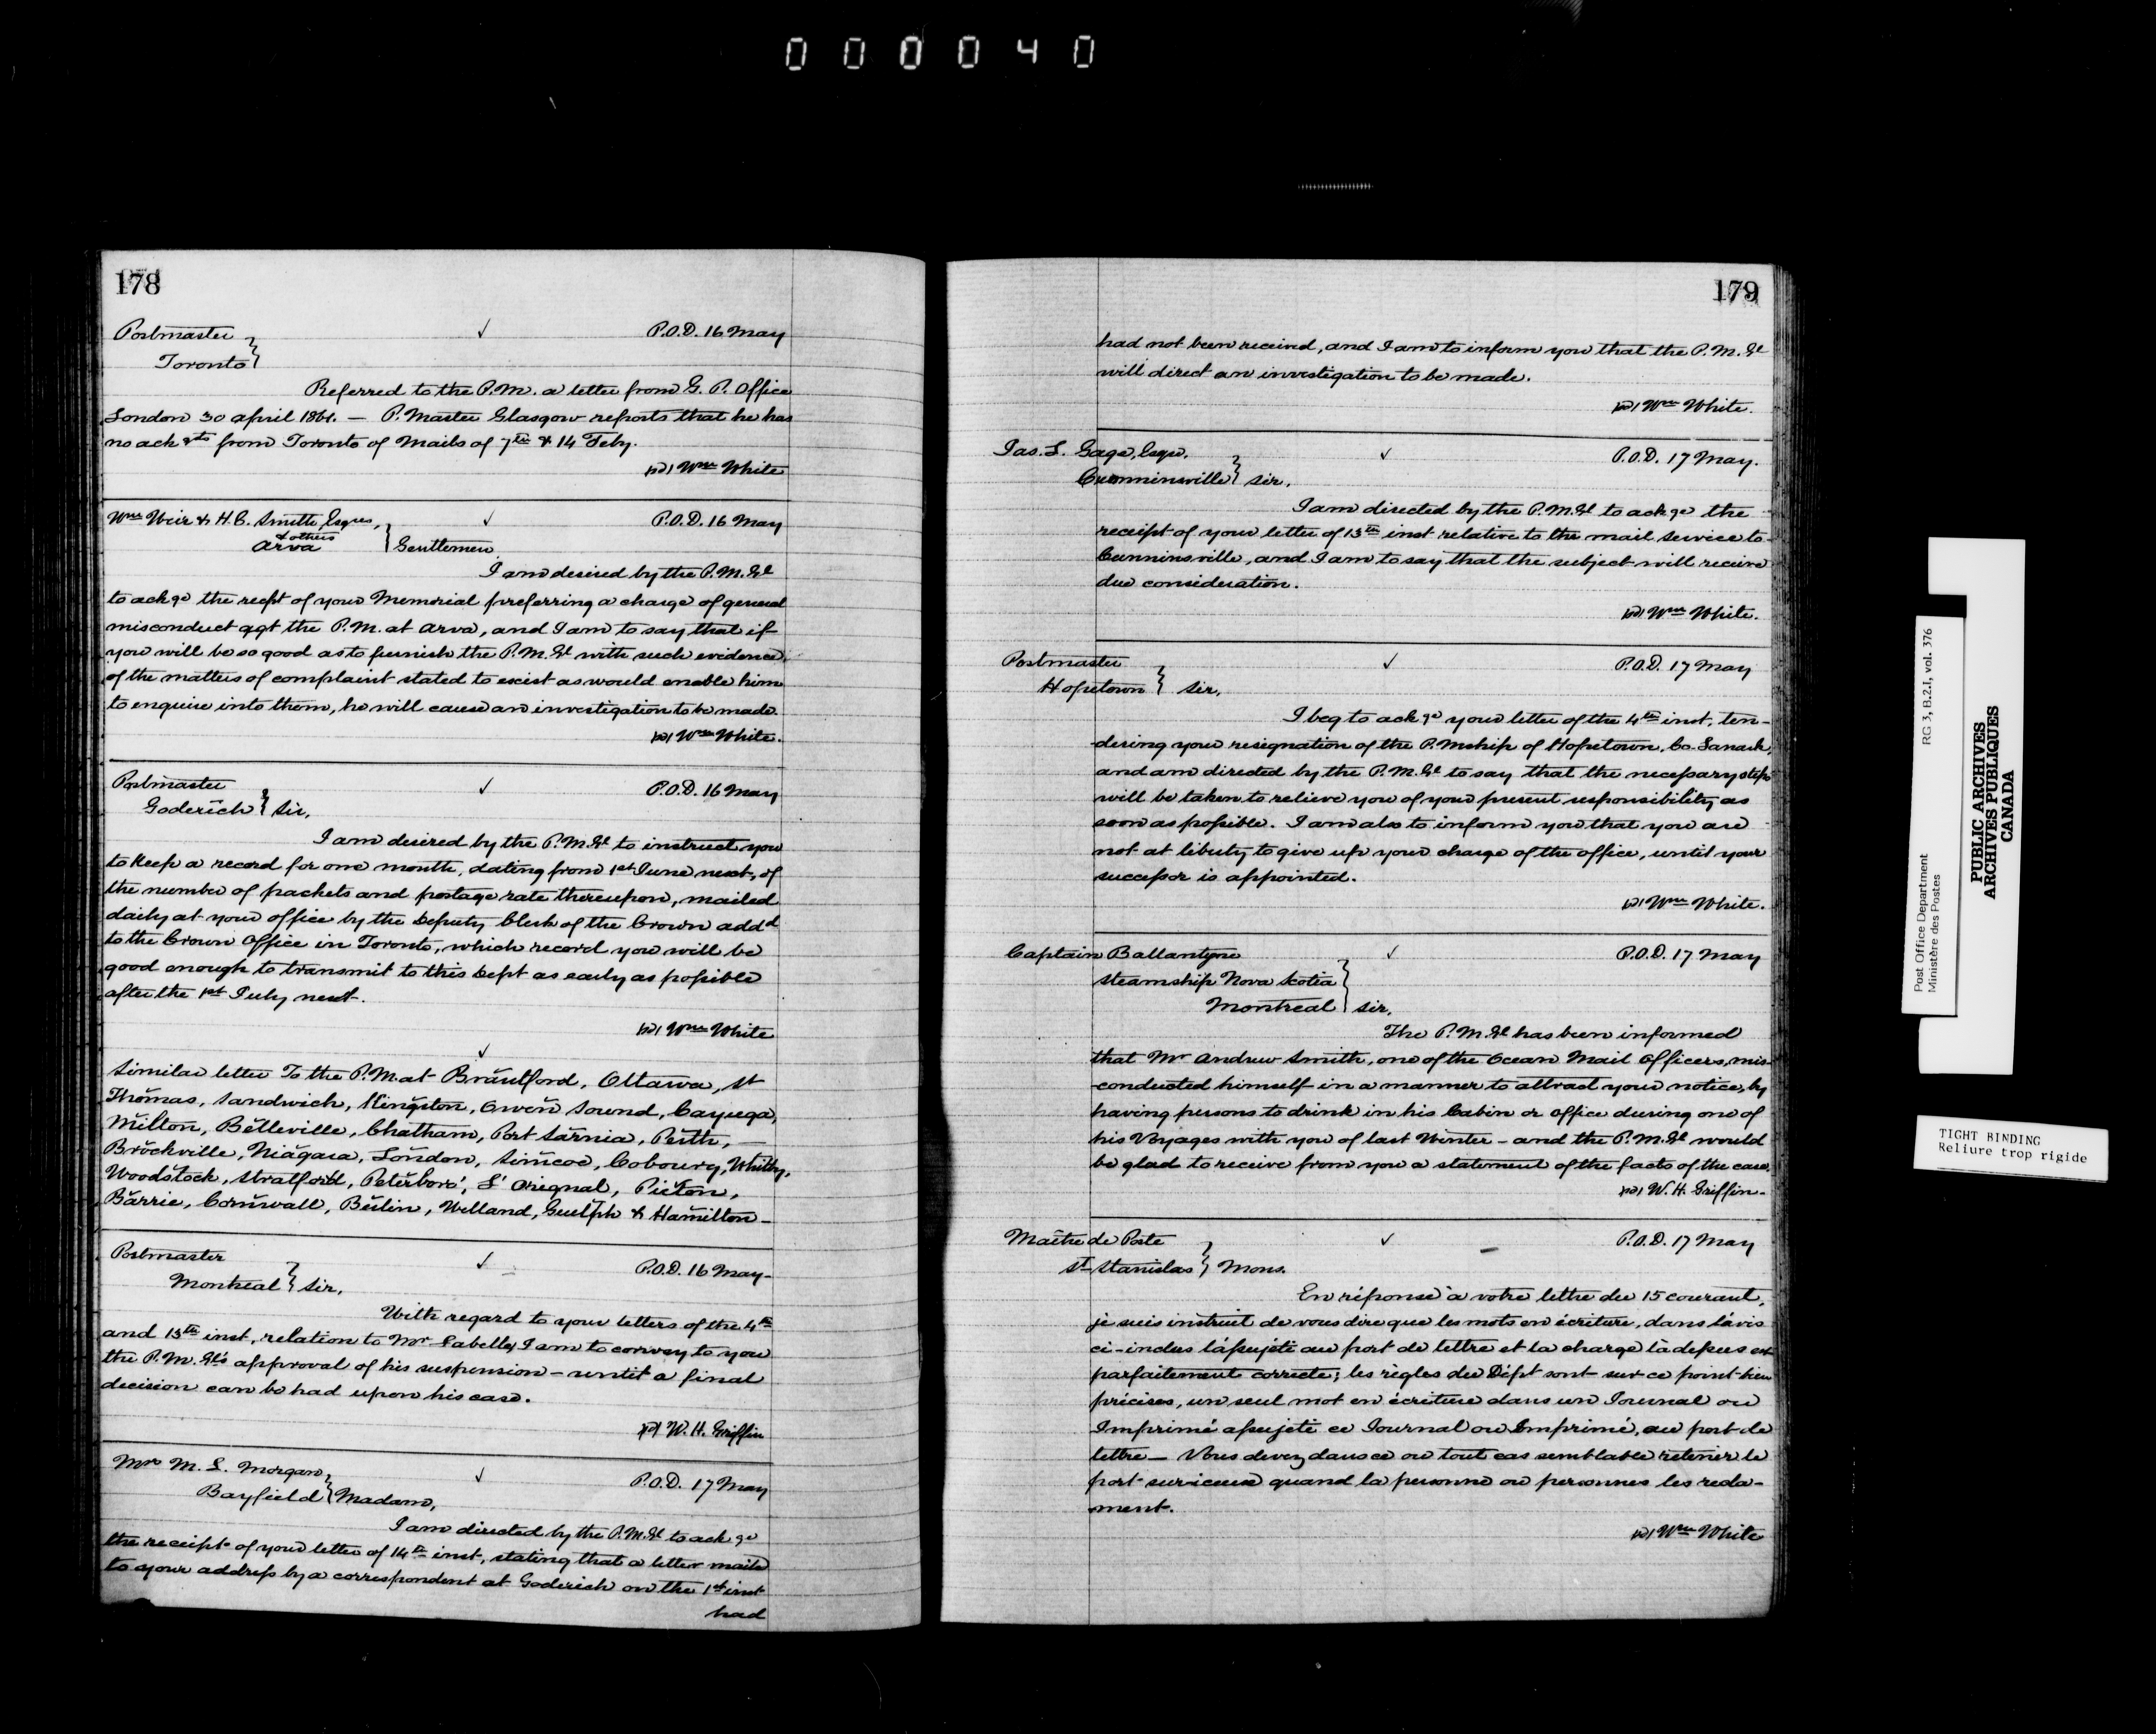 000040
178
Postmaster ✓ P.O.D. 16 May
Toronto
Referred to the P.M. a letter from G. P. Office
London 30 April 1861. — P. Master Glasgow reports that he has
no ack gts from Toronto of Mails of 7th & 14 Feby.
(sd) Wm White
Wm Weir & H.C. Smith, Esqres, ✓ P.O.D. 16 May
& others
Arva } Gentlemen,
I am desired by the P.M.Gl
to ackge the recpt of your Memorial preferring a charge of general
misconduct agt the P.M. at Arva, and I am to say that if
you will be so good as to furnish the P.M.Gl with such evidence,
of the matters of complaint stated to exist as would enable him
to enquire into them, he will cause an investigation to be made.
(sd) Wm White.
Postmaster ✓ P.O.D. 16 May
Goderich } Sir,
I am desired by the P.M.Gl to instruct you
to keep a record for one month, dating from 1st June next, of
the number of packets and postage rate thereupon, mailed
daily at your office by the Deputy Clerk of the Crown addd
to the Crown Office in Toronto, which record you will be
good enough to transmit to this Dept as early as possible
after the 1st July next.
(sd) Wm White
✓
Similar letter To the P.M. at Brantford, Ottawa, St
Thomas, Sandwich, Kingston, Owen Sound, Cayuga,
Milton, Belleville, Chatham, Port Sarnia, Perth, —
Brockville, Niagara, London, Simcoe, Cobourg, Whitby,
Woodstock, Stratford, Peterboro', L'Orignal, Picton,
Barrie, Cornwall, Berlin, Welland, Guelph & Hamilton —
Postmaster ✓ P.O.D. 16 May-
Montreal } Sir,
With regard to your letters of the 4th
and 13th inst, relation to Mr Labelle, I am to convey to you
the P.M.Gl's approval of his suspension — until a final
decision can be had upon his case.
(sd) W. H. Griffin
Mrs M. L. Morgan, ✓ P.O.D. 17 May
Bayfield } Madam,
I am directed by the P.M.Gl to ackge
the receipt of your letter of 14th inst, stating that a letter mailed
to your address by a correspondent at Goderich on the 1st inst
had
179
had not been received, and I am to inform you that the P.M.Gl
will direct an investigation to be made.
(sd) Wm White.
Jas. L. Gage, Esqre, ✓ P.O.D. 17 May.
Cumminsville } Sir,
I am directed by the P.M.Gl to ackge the
receipt of your letter of 13th inst relative to the mail service to
Cumminsville, and I am to say that the subject will receive
due consideration.
(sd) Wm White.
Postmaster ✓ P.O.D. 17 May
Hopetown } Sir,
I beg to ackge your letter of the 4th inst, ten-
-dering your resignation of the P.Mship of Hopetown, Co. Lanark,
and am directed by the P.M.Gl to say that the necessary steps
will be taken to relieve you of your present responsibility as
soon as possible. I am also to inform you that you are
not at liberty to give up your charge of the office, until your
successor is appointed.
(sd) Wm White.
Captain Ballantyne ✓ P.O.D. 17 May
Steamship Nova Scotia
Montreal } Sir,
The P.M.Gl has been informed
that Mr Andrew Smith, one of the Ocean Mail Officers, mis-
-conducted himself in a manner to attract your notice, by
having persons to drink in his Cabin or Office during one of
his Voyages with you of last Winter — and the P.M.Gl would
be glad to receive from you a statement of the facts of the case.
(sd) W. H. Griffin-
Maitre de Poste ✓ P.O.D. 17 May
St Stanislas } Mons.
En réponse à votre lettre du 15 courant,
je suis instruit de vous dire que les mots en écriture, dans l'avis
ci-inclus l'assujéti au port de lettre et la charge là dessus est
parfaitement correcte; les règles du Dépt sont sur ce point bien
précises, un seul mot en écriture dans un Journal ou
Imprimé assujéti ce Journal ou Imprimé, au port de
lettre — Vous devez dans ce ou tout cas semblable retenir le
port quand la personne ou personnes les recla-
ment.
(sd) Wm White
Post Office Department
Ministère des Postes
RG 3, B.2.I, vol. 376
PUBLIC ARCHIVES
ARCHIVES PUBLIQUES
CANADA
TIGHT BINDING
Reliure trop rigide